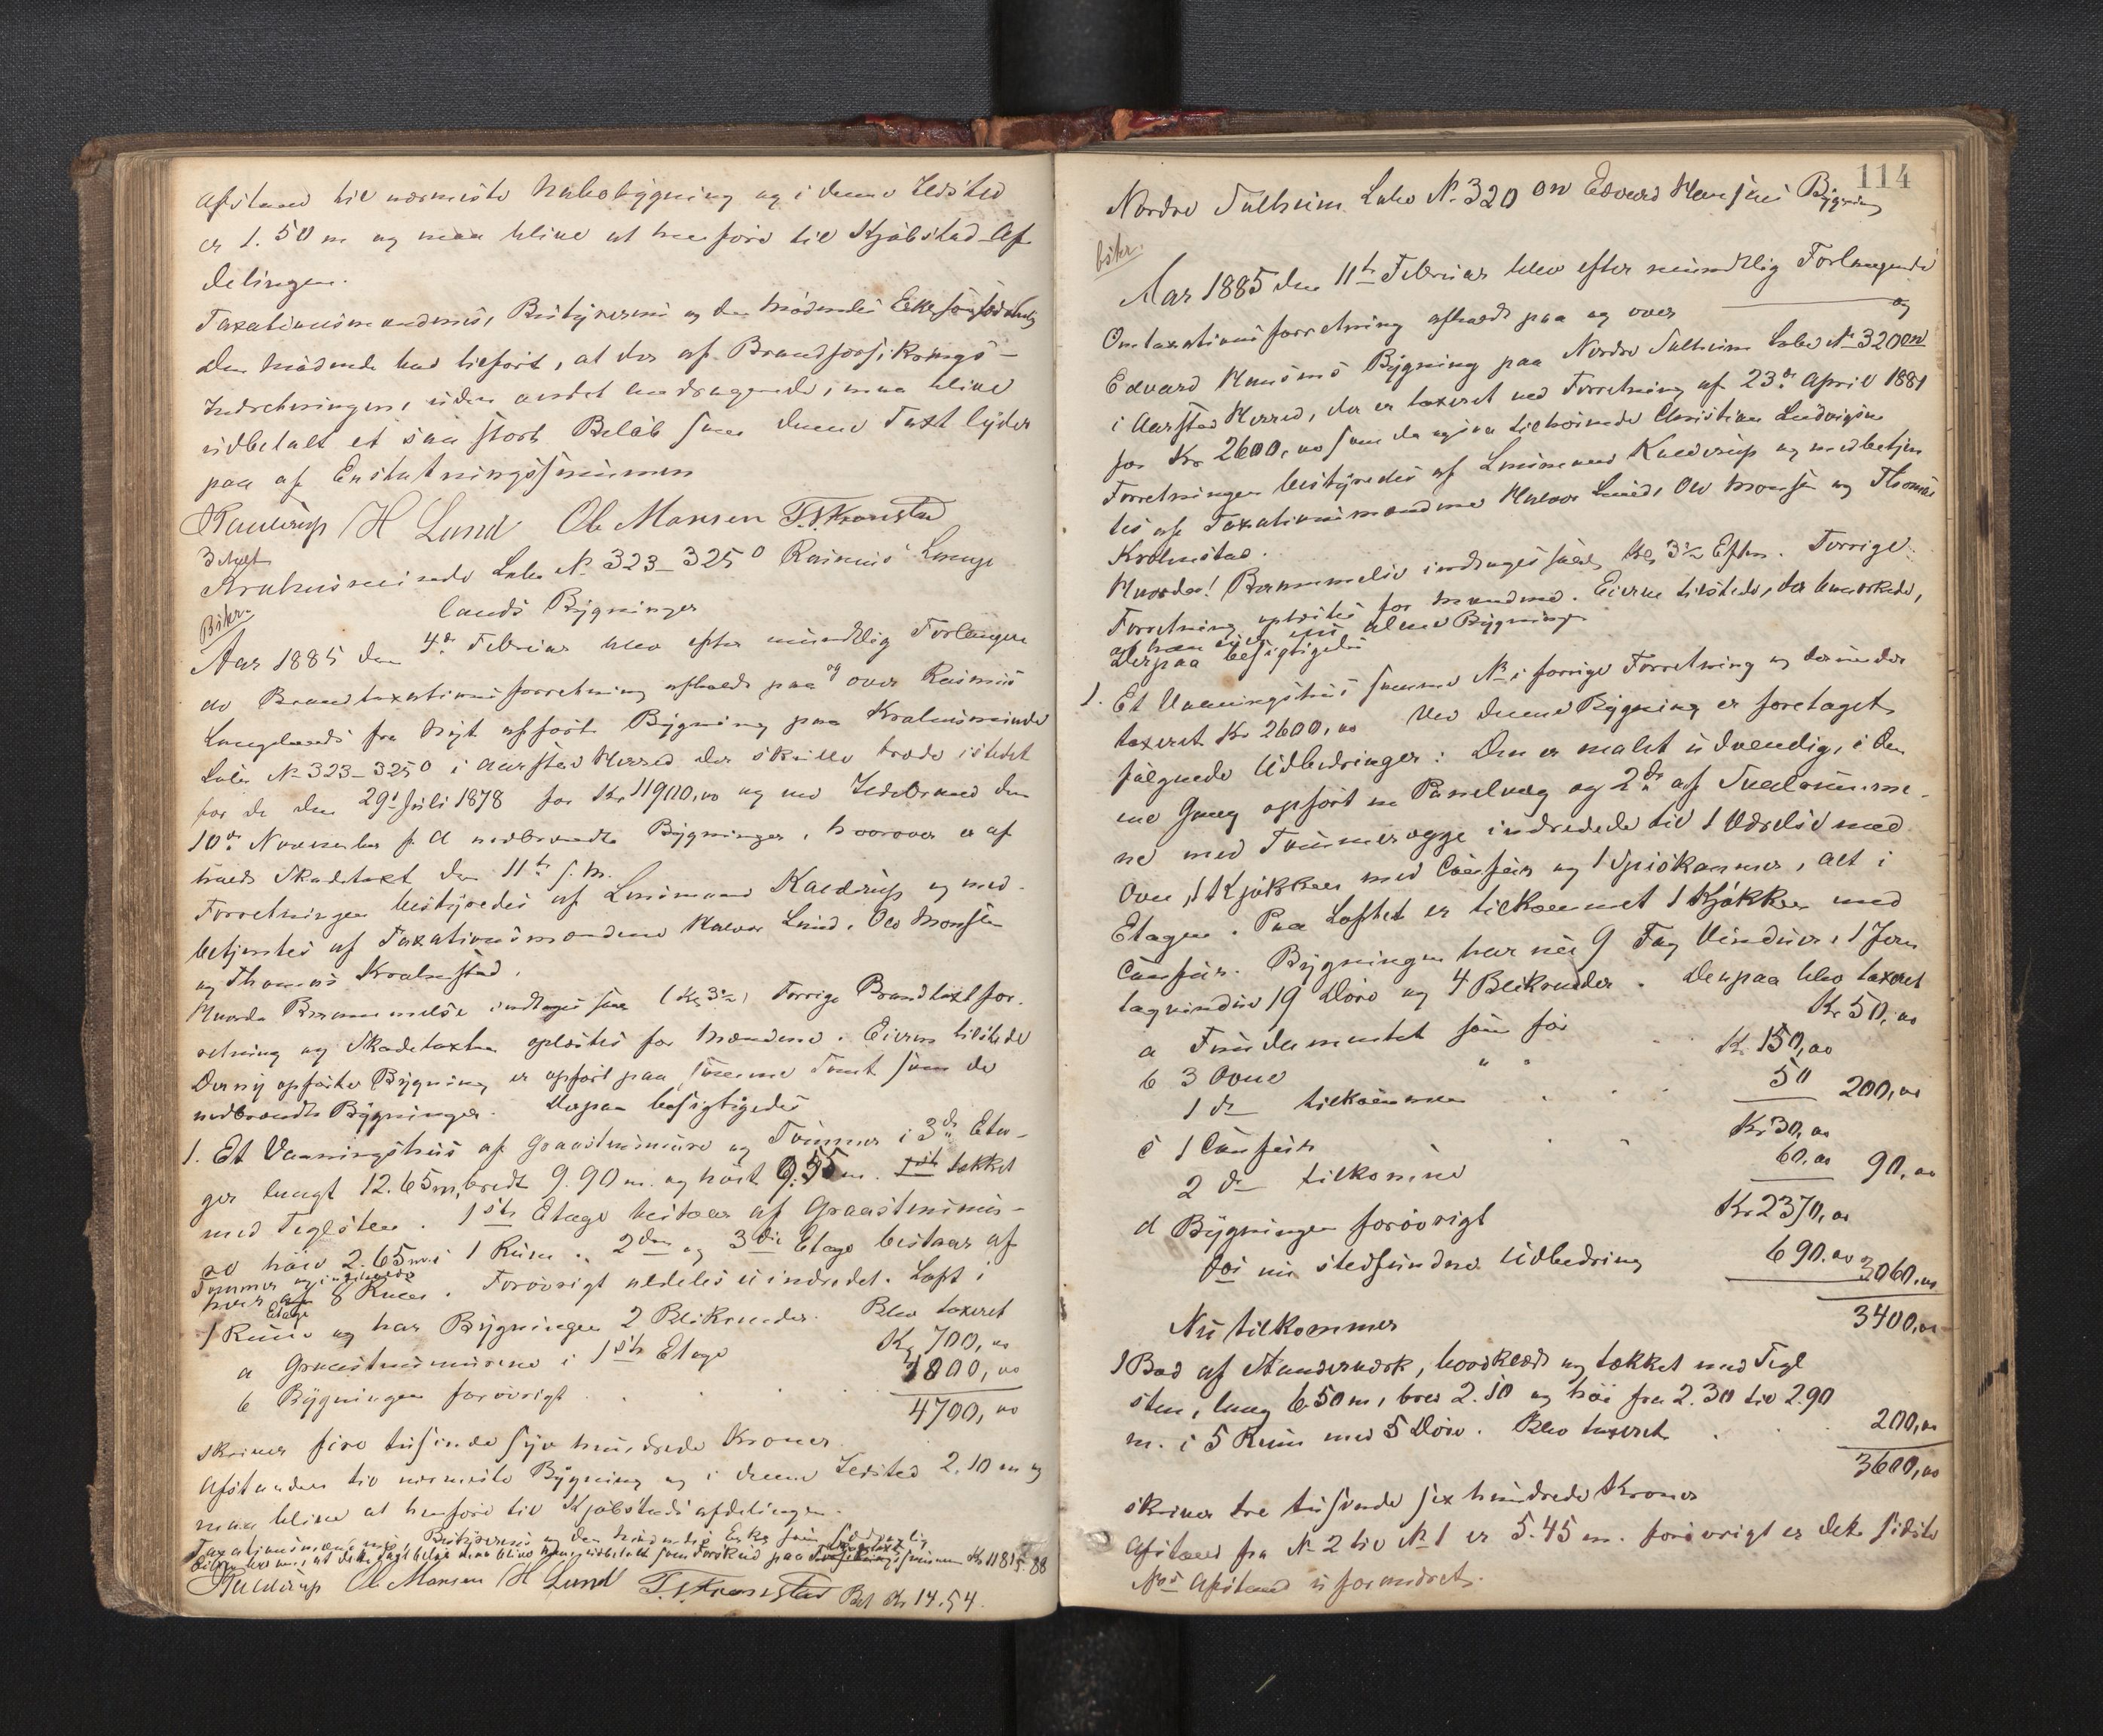 Afstand til nærmeste Nabobygning og i denne Ildsted
er 1.50 m og maa blive at henføre til Kjøbstad-Af
delingen.
Taxationsmændenes, Bestyrerens og den mødendes
den mødende har tilført, at der af Brandforsikrings-
Indretningen, uden andet Andragende, maa blive
udbetalt et saa stort Beløb som denne Taxt lyder
paa af Erstatningssummen
Kaldrup H Lund Ole Monsen T. T. Kronstad
Kralmsminde Løbe No 323-325 o Rasmus Lange
lands Bygninger
Aar 1885 den 4de Februar blev efter mundtlig Forlangen
de Brandtaxationsforretning afholdt paa og over Rasmus
Langelands fra Nyt opført Bygning paa Kralmsminde
Løbe No 323-325 o i Aarstad Herred der skulle træde istedet
for de den 29de Juli 1878 for Kr 11900,00 og ved Ildebrand den
10de November f. A nedbrændte Bygninger, hvorover er af
holdt Skadetaxt den 11te s. M.
Forretningen bestyredes af Lensmand Kaldrup og med-
betjentes af Taxationsmændene Halvor Lund, Ole Monsen
og Thomas Kronstad.
Hvorda Berammelse indtages saa (Kl 3½) Forrige Brandtaxtfor-
retning og Skadetaxten oplæstes for Mændene. Eieren tilstede
Den ny opførte Bygning er opført paa samme Tomt som de
nedbrændte Bygninger. Derpaa besigtigedes
1. Et Vaaningshus af Graastensmure og Tømmer i 3de Eta-
ger langt 12.65 m, bredt 9.90 m. og høit 9.55 m. tækket
med Teglsten. 1ste Etage bestaar af Graastensmur-
og høie 2.65 m i 1 Rum. 2den og 3die Etage bestaar af
Tømmer og indeholder
hver Etage 8 Rum. Forøvrigt aldeles uindredet. Loft i
1 Rum og har Bygningen 2 Blikrender. Blev taxeret
a Graastensmurene i 1ste Etage Kr 700,00
b Bygningen forøvrigt . . . . 4000,00
4700,00
skriver fire tusinde syv hundrede Kroner.
Afstanden til nærmeste Bygning og i denne Ildsted 2.10 m og
maa blive at henføre til Kjøbstadsafdelingen.
Kaldrup Ole Monsen H Lund T. T. Kronstad Bet Kr 14.54.
114
Nordre Solheim Løbe No 320 on Edvard Hansens Bygning
Aar 1885 den 11te Februar blev efter mundtlig Forlangende
Omtaxationsforretning afholdt paa og over og
Edvard Hansens Bygning paa Nordre Solheim Løbe No 320 on
i Aarstad Herred, der er taxeret ved Forretning af 23de April 1881
for Kr 2600,00 som da tilhørende Christian Ludvigsen
Forretningen bestyredes af Lensmand Kaldrup og medbetjen
tes af Taxationsmændene Halvor Lund, Ole Monsen og Thomas
Kronstad.
Hvorda! Berammelse indtages saal. Kl 3½ Efterm. Forrige
Forretning oplæstes for Mændene. Eieren tilstede, der bemærkede,
at han eier alene Bygningen
Derpaa besigtigedes
1. Et Vaaningshus samme No i forrige Forretning og derunder
taxeret Kr 2600,00 Ved denne Bygning er foretaget
følgende Udbedringer: Den er malet udvendig, i den
ene Gang opført en Panelvæg og 2de af Svalerumme-
ne med Tømmervægge indredede til 1 Værelse med
Ovn, 1 Kjøkken med Comfur og 1 Spiskammer, alt i
Etagen. Paa Loftet er tilkommet 1 Kjøkken med
Comfur. Bygningen har nu 9 Fag Vinduer, 1 Jern
tagvindue 19 Døre og 4 Blikrender. Derpaa blev taxeret
a Fundamentet som før Kr 50,00
b 3 Ovne " " Kr 150,00
1 do tilkommen . . . 50 200,00
c 1 Comfur . . Kr 30,00
2 do tilkomne 60,00 90,00
d Bygningen forøvrigt Kr 2370,00
for nu stedfundne Udbedring 690.00 3060,00
3400,00
Nu tilkommer
1 Bod af Standerværk, bordklædt og tækket med Tegl
sten, lang 6.50 m, bred 2.10 og høi fra 2.30 til 2.90
m. i 5 Rum med 5 Døre. Blev taxeret . . . 200,00
3600,00
skriver tre tusinde sex hundrede Kroner
Afstand fra No 2 til No 1 er 5.45 m. forøvrigt er dette sidste
No's Afstand uforandret.